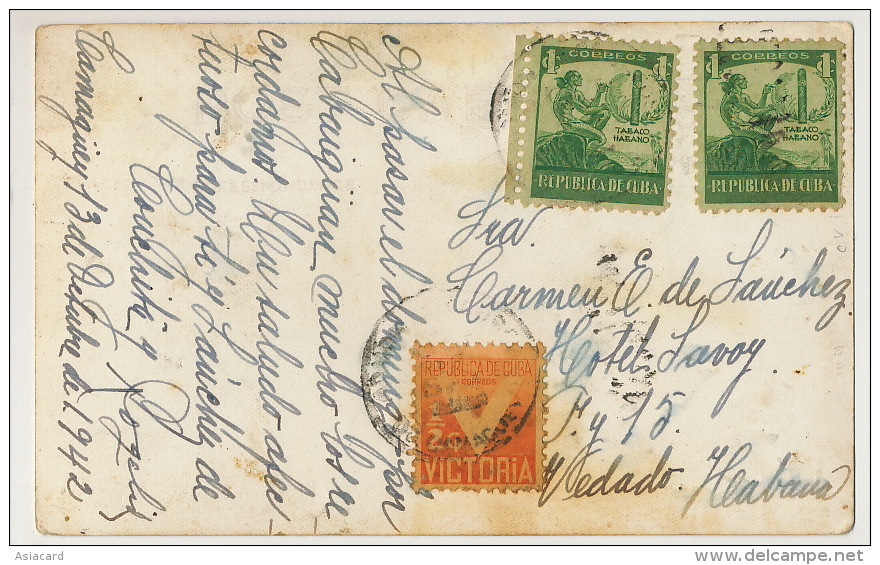 CORREOS
1 1
TABACO
HABANO
REPUBLICA DE CUBA
CORREOS
1 1
TABACO
HABANO
REPUBLICA DE CUBA
Sra.
Carmen E. de Sánchez
Hotel Savoy
F. y 15.
Vedado. Habana
REPUBLICA DE CUBA
CORREOS
1/2 c
VICTORIA
Al pasar el por
Cabaiguan mucho los re
cordamos Un saludo afec
tuoso para ti y Sánchez de
Conchita y Rogelio
Camagüey 13 de Octubre de 1942
Asiacard
www.delcampe.net